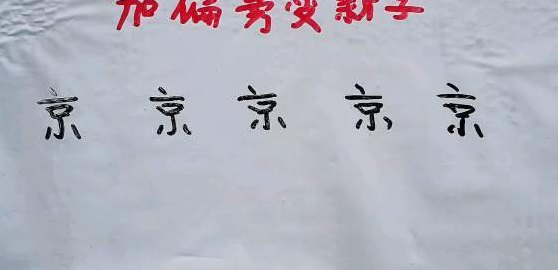 加偏旁变新字
京 京 京 京 京